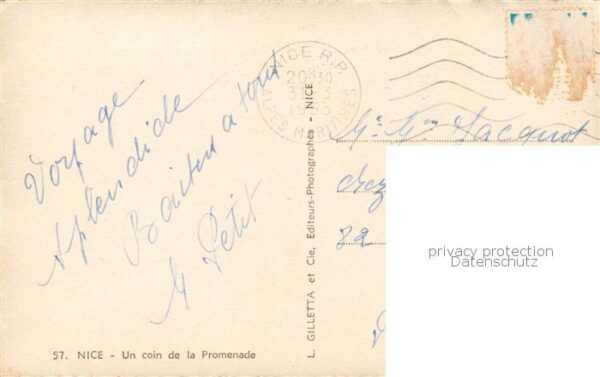 Voyage
splendide
Baisers a tous
M Petit
57. NICE - Un coin de la Promenade
L. GILLETTA et Cie, Editeurs-Photographes - NICE
NICE R.P.
20H30
ALPES MARITIMES
Mr. Mme Jacquot
chez
privacy protection
Datenschutz